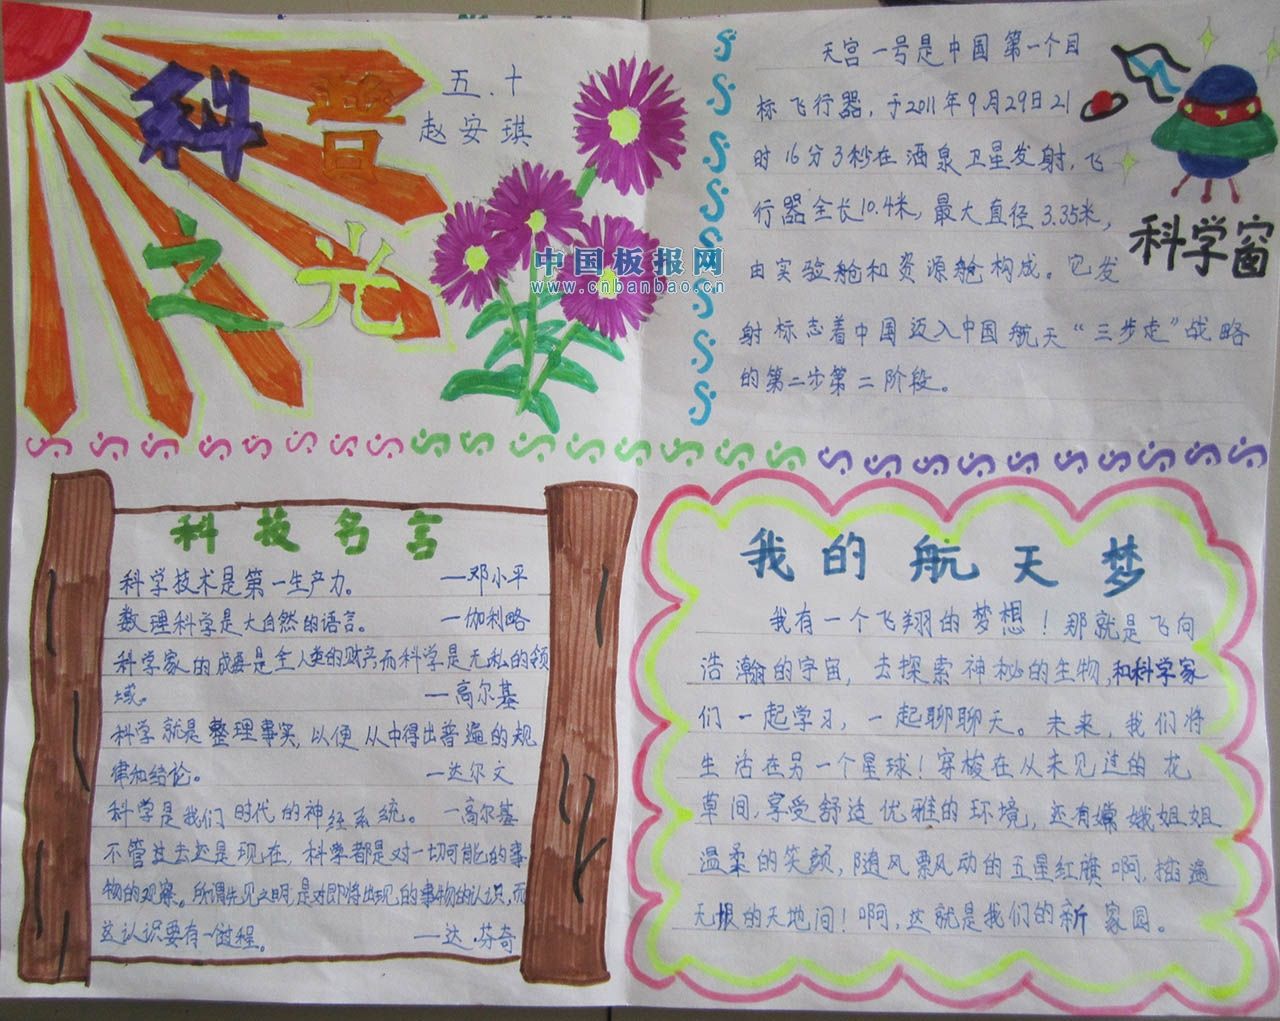 科普之光
五.十
赵安琪
中国板报网
www.cnbanbao.cn
天宫一号是中国第一个目
标飞行器，于2011年9月29日21
时16分3秒在酒泉卫星发射，飞
行器全长10.4米，最大直径3.35米，
由实验舱和资源舱构成。它发
射标志着中国迈入中国航天“三步走”战略
的第二步第二阶段。
科学窗
科技名言
科学技术是第一生产力。 —邓小平
数理科学是大自然的语言。 —伽利略
科学家的成果是全人类的财产而科学是无私的领
域。 —高尔基
科学就是整理事实，以便从中得出普遍的规
律和结论。 —达尔文
科学是我们时代的神经系统。 —高尔基
不管过去还是现在，科学都是对一切可能的事
物的观察。所谓先见之明，是对即将出现的事物的认识，而
这认识要有一个过程。 —达·芬奇
我的航天梦
我有一个飞翔的梦想！那就是飞向
浩瀚的宇宙，去探索神秘的生物，和科学家
们一起学习，一起聊聊天。未来，我们将
生活在另一个星球！穿梭在从未见过的花
草间，享受舒适优雅的环境，还有嫦娥姐姐
温柔的笑颜，随风飘动的五星红旗啊，插遍
无垠的天地间！啊，这就是我们的新家园。